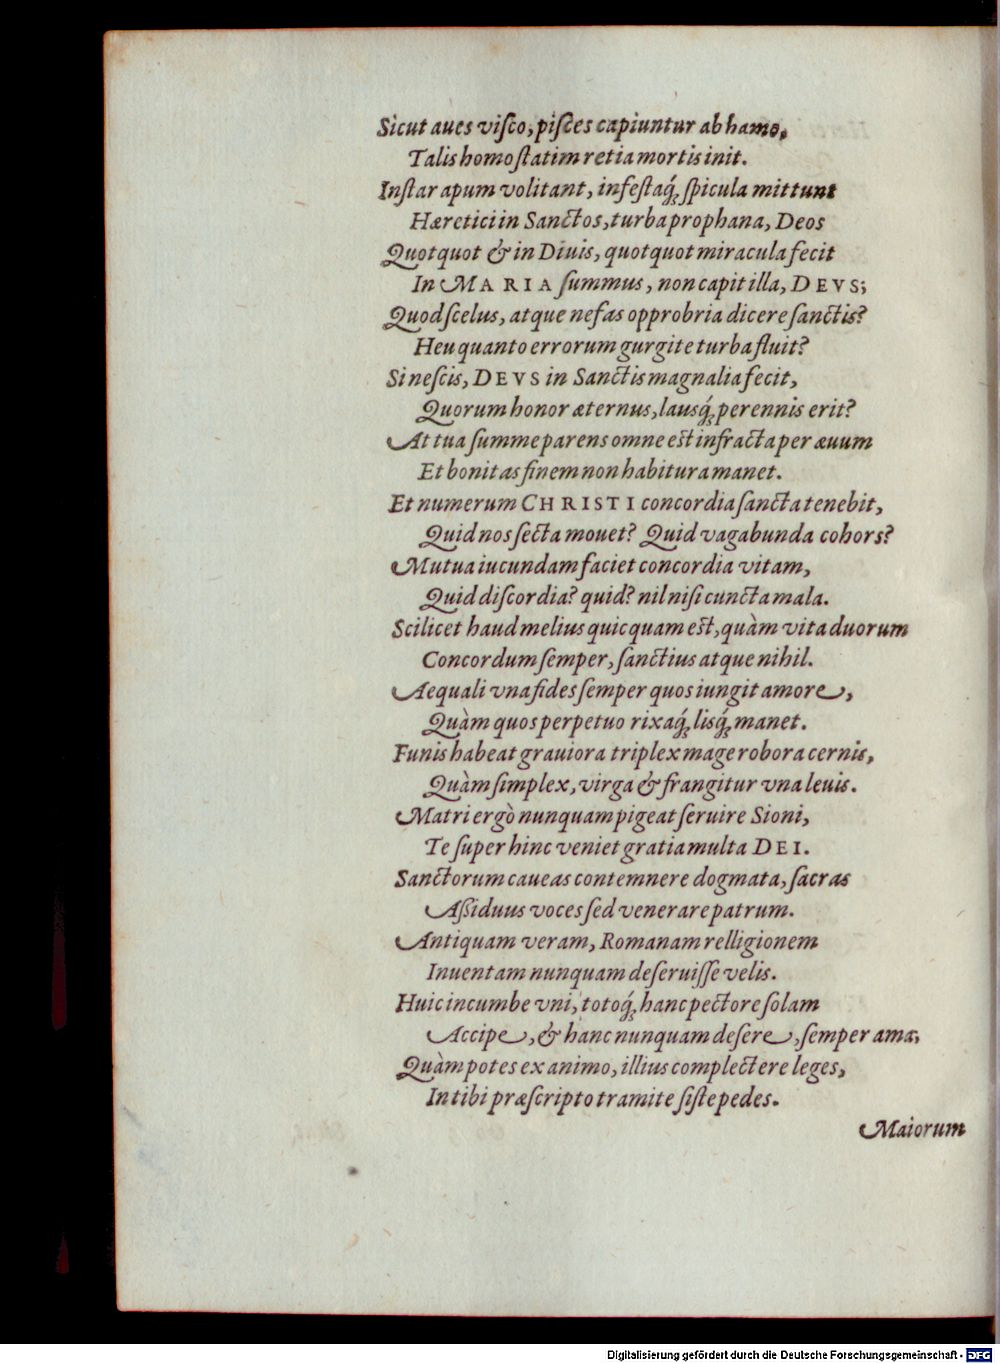 Sicut aues viſco, piſces capiuntur ab hamo,
Talis homo ſtatim retia mortis init.
Inſtar apum volitant, infeſtaq́; ſpicula mittunt
Hæretici in Sanctos, turba prophana, Deos
Quotquot & in Diuis, quotquot miracula fecit
In MARIA ſummus, non capit illa, DEVS;
Quod ſcelus, atque nefas opprobria dicere ſanctis?
Heu quanto errorum gurgite turba fluit?
Si neſcis, DEVS in Sanctis magnalia fecit,
Quorum honor æternus, lausq́; perennis erit?
At tua ſumme parens omne est infracta per æuum
Et bonitas finem non habitura manet.
Et numerum CHRISTI concordia ſancta tenebit,
Quid nos ſecta mouet? Quid vagabunda cohors?
Mutua iucundam faciet concordia vitam,
Quid diſcordia? quid? nil niſi cuncta mala.
Scilicet haud melius quicquam est, quàm vita duorum
Concordum ſemper, ſanctius atque nihil.
Aequali vna fides ſemper quos iungit amore,
Quàm quos perpetuo rixaq́; lisq́; manet.
Funis habeat grauiora triplex mage robora cernis,
Quàm ſimplex, virga & frangitur vna leuis.
Matri ergò nunquam pigeat ſeruire Sioni,
Te ſuper hinc veniet gratia multa DEI.
Sanctorum caueas contemnere dogmata, ſacras
Aßiduus voces ſed venerare patrum.
Antiquam veram, Romanam relligionem
Inuentam nunquam deſeruiſſe velis.
Huic incumbe vni, totoq́; hanc pectore ſolam
Accipe, & hanc nunquam deſere, ſemper ama;
Quàm potes ex animo, illius complectere leges,
In tibi præſcripto tramite ſiſte pedes.
Maiorum
Digitalisierung gefördert durch die Deutsche Forschungsgemeinschaft - DFG